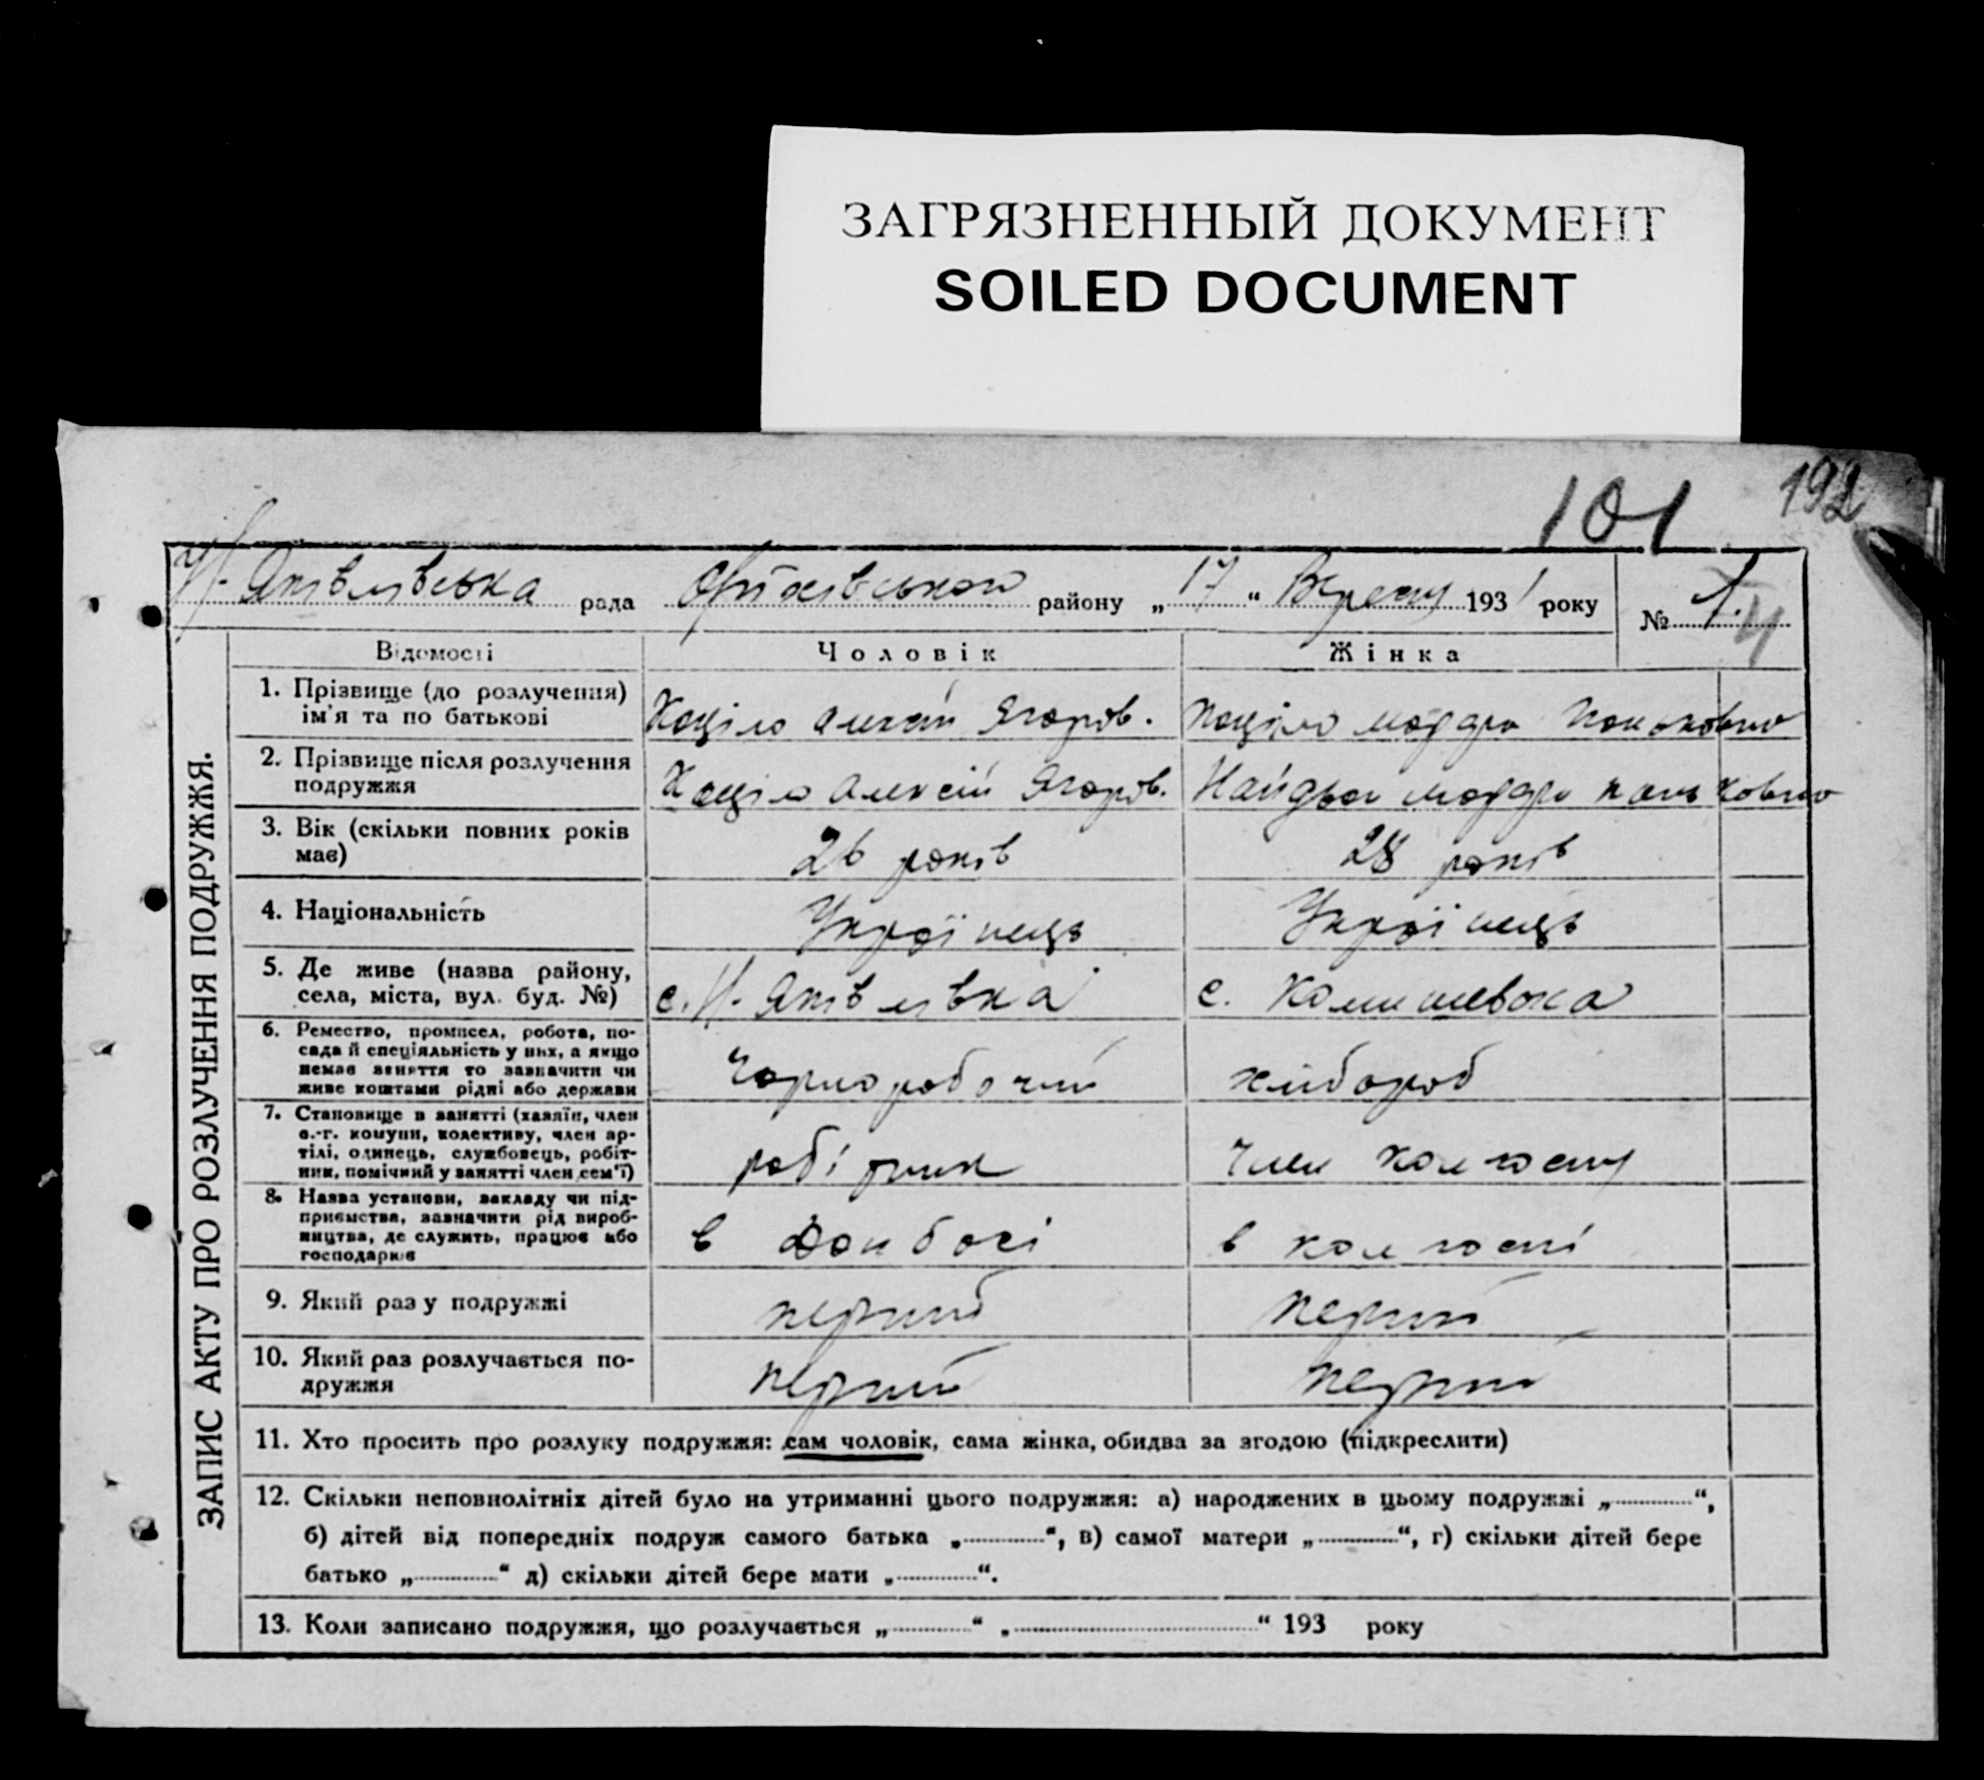 ЗАГРЯЗНЕННЫЙ ДОКУМЕНТ
SOILED DOCUMENT
101 192
Н. Яківлівська рада Оріхівського району „ 17 “ Вересня 1931 року № 1. 4
ЗАПИС АКТУ ПРО РОЗЛУЧЕННЯ ПОДРУЖЖЯ.
Відомості Чоловік Жінка
1. Прізвище (до розлучення)
ім'я та по батькові
Коціло Алексій Ягоров. Коціло
2. Прізвище після розлучення
подружжя
Коціло Алексій Ягоров. Найдьон
3. Вік (скільки повних років
має)
26 років 28 років
4. Національність Українець Українець
5. Де живе (назва району,
села, міста, вул. буд. №)
с. Н. Яківлівка с. Комишеваха
6. Ремество, промисел, робота, по-
сада й спеціяльність у них, а якщо
немає заняття то зазначити чи
живе коштами рідні або держави
Чорноробочий хлібороб
7. Становище в занятті (хазяїн, член
с.-г. комуни, колективу, член ар-
тілі, одинець, службовець, робіт-
ник, помічний у занятті член сем'ї)
робітник член колгоспу
8. Назва установи, закладу чи під-
приємства, зазначити рід вироб-
ництва, де служить, працює або
господарює
в Донбасі в колгоспі
9. Який раз у подружжі перший перший
10. Який раз розлучається по-
дружжя
перший перший
11. Хто просить про розлуку подружжя: сам чоловік, сама жінка, обидва за згодою (підкреслити)
12. Скільки неповнолітніх дітей було на утриманні цього подружжя: а) народжених в цьому подружжі „ “,
б) дітей від попередніх подруж самого батька „ “, в) самої матери „ “, г) скільки дітей бере
батько „ “ д) скільки дітей бере мати „ “.
13. Коли записано подружжя, що розлучається „ “ „ “ 193 року